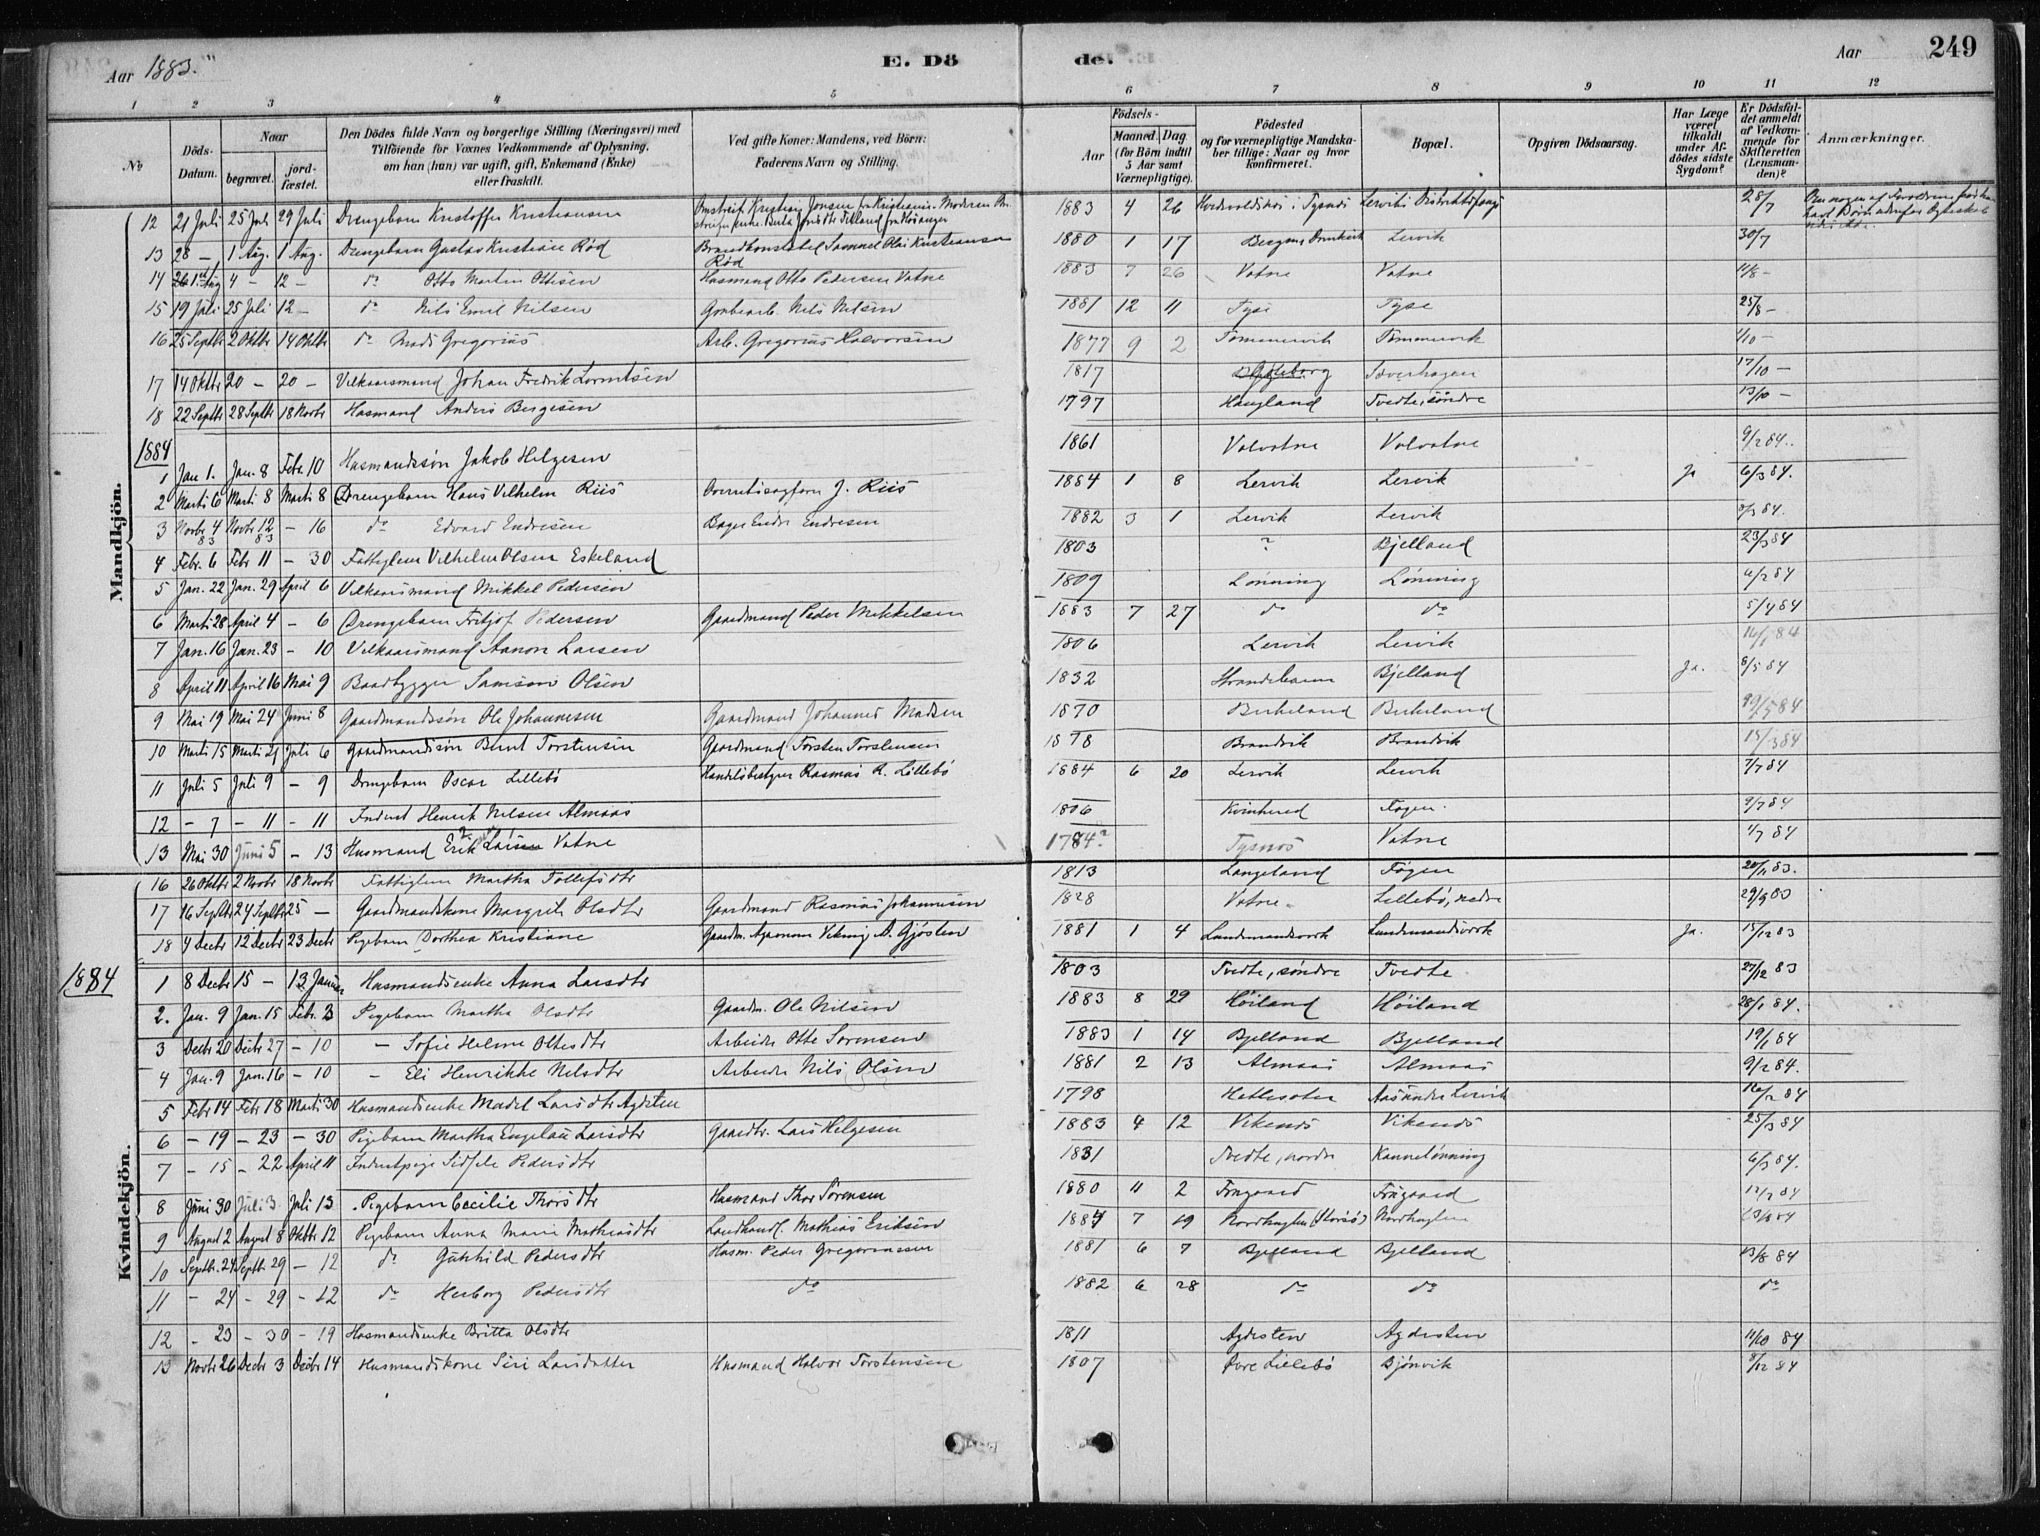 Aar 1883. E. Döde. Aar 249
1 2 3 4 5 6 7 8 9 10 11 12
No Döds-Datum. Naar begravet. jordfæstet. Den Dödes fulde Navn og borgerlige Stilling (Næringsvei) med Tilföiende for Voxnes Vedkommende af Oplysning, om han (hun) var ugift, gift, Enkemand (Enke) eller fraskilt. Ved gifte Koner: Mandens, ved Börn: Faderens Navn og Stilling. Födsels- Aar Maaned. Dag. (for Börn indtil 5 Aar samt Værnepligtige). Födested og for værnepligtige Mandskaber tillige: Naar og hvor konfirmeret. Bopæl. Opgiven Dödsaarsag. Har Læge været tilkaldt under Afdödes sidste Sygdom? Er Dödsfaldet anmeldt af Vedkommende for Skifteretten (Lensmanden)? Anmærkninger.
Mandkjön.
12 21 Juli 25 Juli 29 Juli Drengebarn Kristoffer Kristiansen 1883 4 26 i Tysnes 28/7
13 28 – 1 Aug. 1 Aug. Drengebarn Gustav Kristian Röd Brandkonstabel Samuel Olai Kristiansen Röd 1880 1 17 Bergens Domkirk Lervik 30/7
14 4 – 12 – do Otto Martin Ottesen Husmand Otto Pedersen Vatne 1883 7 26 Vatne Vatne 11/8 –
15 19 Juli 25 Juli 12 – do Nils Emil Nilsen Grubearb. Nils Nilsen 1881 12 11 Tyse Tyse 25/8 –
16 25 Septbr 2 Oktbr 14 Oktbr do Mads Gregorius Arb. Gregorius Halvorsen 1877 9 2 Tömmervik Tömmervik 1/10 –
17 14 Oktbr 20 – 20 – Vilkaarsmand Johan Fredrik Lorentsen 1817 Göteborg Sæverhagen 17/10 –
18 22 Septbr 28 Septbr 18 Novbr Husmand Anders Bergesen 1797 Haugland Tvedte, söndre 13/10 –
1884
1 Jan 1. Jan. 8 Febr. 10 Husmandssön Jakob Helgesen 1861 Valvatne Valvatne 9/2 84.
2 Marti 6 Marti 8 Marti 8 Drengebarn Hans Vilhelm Riis Overretssagförer J. Riis 1884 1 8 Lervik Lervik Ja 6/3 84.
3 Novbr 4 83 Novbr 12 83 – 16 do Edvard Endresen Bager Endre Endresen 1882 3 1 Lervik Lervik 84.
4 Febr. 6 Febr 11 – 30 Fattiglem Vilhelm Olsen Eskeland 1803 ? Bjelland 23/3 84
5 Jan. 22 Jan. 29 April 6 Vilkaarsmand Mikkel Pedersen 1809 Lönning Lönning 6/2 84
6 Marti 28 April 4 – 6 Drengebarn Fritjof Pedersen Gaardmand Peder Mikkelsen 1883 7 27 do do 5/4 84
7 Jan. 16 Jan. 23 – 10 Vilkaarsmand Aanon Larsen 1806 Lervik Lervik 84
8 April 11 April 16 Mai 9 Baadbygger Samson Olsen 1832 Strandebarm Bjelland Ja. 8/5 84
9 Mai 19 Mai 24 Juni 8 Gaardmandssön Ole Johannesen Gaardmand Johannes Madsen 1870 Birkeland Birkeland 84
10 Marti 15 Marti 21 Juli 6 Gaardmandssön Bernt Torstensen Gaardmand Torsten Torstensen 1878 Brandvik Brandvik 15/3 84
11 Juli 5 Juli 9 – 9 Drengebarn Oscar Lillebö Handelsbestyrer Rasmus R. Lillebö 1884 6 20 Lervik Lervik 7/7 84
12 – 7 – 11 – 11 Inderst Henrik Nilsen Almaas 1806 Kvinherred Fögen. 9/7 84
13 Mai 30 Juni 5 – 13 Husmand Erik Larsen Vatne 1784? Tysnes Vatne 1/7 84
Kvindekjön.
16 26 Oktbr 2 Novbr 18 Novbr Fattiglem Martha Tollefsdtr 1813 Langeland Fögen 83.
17 16 Septbr 24 Septbr 25 – Gaardmandskone Margrete Olsdtr Gaardmand Rasmus Johannesen 1828 Vatne. Lillebö, nedre 29/9 83
18 4 Decbr 12 Decbr 23 Decbr Pigebarn Dorthea Kristiane 1881 1 4 Landmandsverk Landmandsverk Ja. 15/12 83
1884
1 8 Decbr 15 – 13 Januar Husmandsenke Anna Larsdtr 1803 Tvedte, söndre Tvedte 27/12 83
2. Jan. 9 Jan. 15 Febr. 3 Pigebarn Martha Olsdtr Gaardm. Ole Nilsen 1883 8 29 Höiland Höiland 28/1 84.
3 Decbr 20 Decbr 27 – 10 – Sofie Helene Ottesdtr Arbeider Otte Sörensen 1883 1 14 Bjelland Bjelland 19/1 84
4 Jan. 9 Jan. 16 – 10 – Eli Henrikke Nilsdtr Arbeider Nils Olsen 1881 2 13 Almaas Almaas 9/2 84.
5 Febr 14 Febr 18 Marti 30 Husmandsenke Madel Larsdtr Agdesten 1798 Hetlesæter Aasunder Lervik 16/2 84
6 – 19 – 23 – 30 Pigebarn Martha Engelau Larsdtr Gaardbr. Lars Helgesen 1883 4 12 Vikenes Vikenes 25/3 84
7 – 15 – 22 April 11 Inderstpige Sidsele Pedersdtr 1831 Tvedte, nordre Kannelönning 6/3 84.
8 Juni 30 Juli 3 Juli 13 Pigebarn Cecilie Thorsdtr Husmand Thor Sörensen 1880 11 2 Frugaard Frugaard 12/7 84
9 August 2 August 8 Oktbr 12 Pigebarn Anna Marie Mathiasdtr Landhandl. Mathias Eriksen 1884 7 19 Nordhuglen (Storöö) Nordhuglen 84
10 Septbr. 24 Septbr 29 – 12 do Gunhild Pedersdtr Husm. Peder Gregoriussen 1881 6 7 Bjelland Bjelland 84
11 – 24 – 29 – 12 do Herborg Pedersdtr do 1882 6 28 do do do
12 – 23 – 30 – 19 Husmandsenke Britta Olsdtr 1811 Agdesten Agdesten 11/10 84
13 Novbr 26 Decbr 3 Decbr 14 Husmandskone Siri Larsdatter Husmand Halvor Torstensen 1807 Övre Lillebö Bjönvik 8/12 84